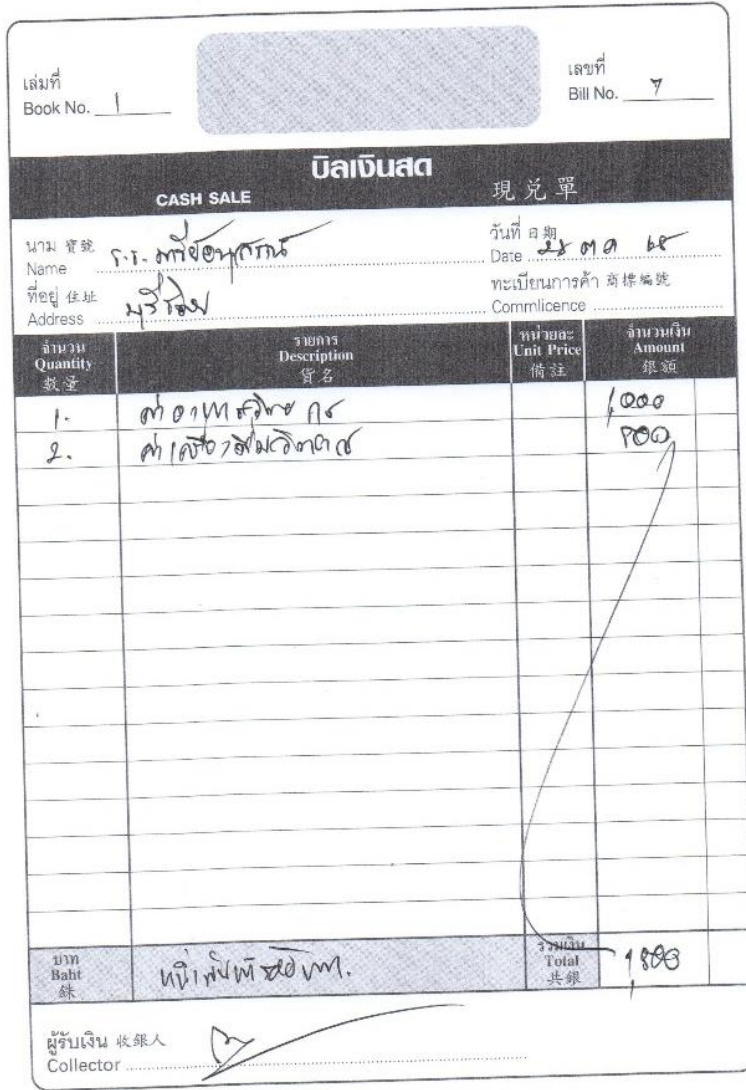 เล่มที่
Book No. 1
เลขที่
Bill No. 7
บิลเงินสด
CASH SALE 現兌單
นาม 寶號
Name ร.ร.
วันที่ 日期
Date ต.ค.
ที่อยู่ 住址
Address บุรีรัมย์
ทะเบียนการค้า 商標編號
Commlicence
จำนวน
Quantity
數量
รายการ
Description
貨名
หน่วยละ
Unit Price
備註
จำนวนเงิน
Amount
銀額
1. ค่าอาหารวิทยากร 1,000
2. ค่าเครื่องดื่มวิทยากร 800
บาท
Baht
銖
หนึ่งพันแปดร้อยบาท.
รวมเงิน
Total
共銀
1,800
ผู้รับเงิน 收銀人
Collector